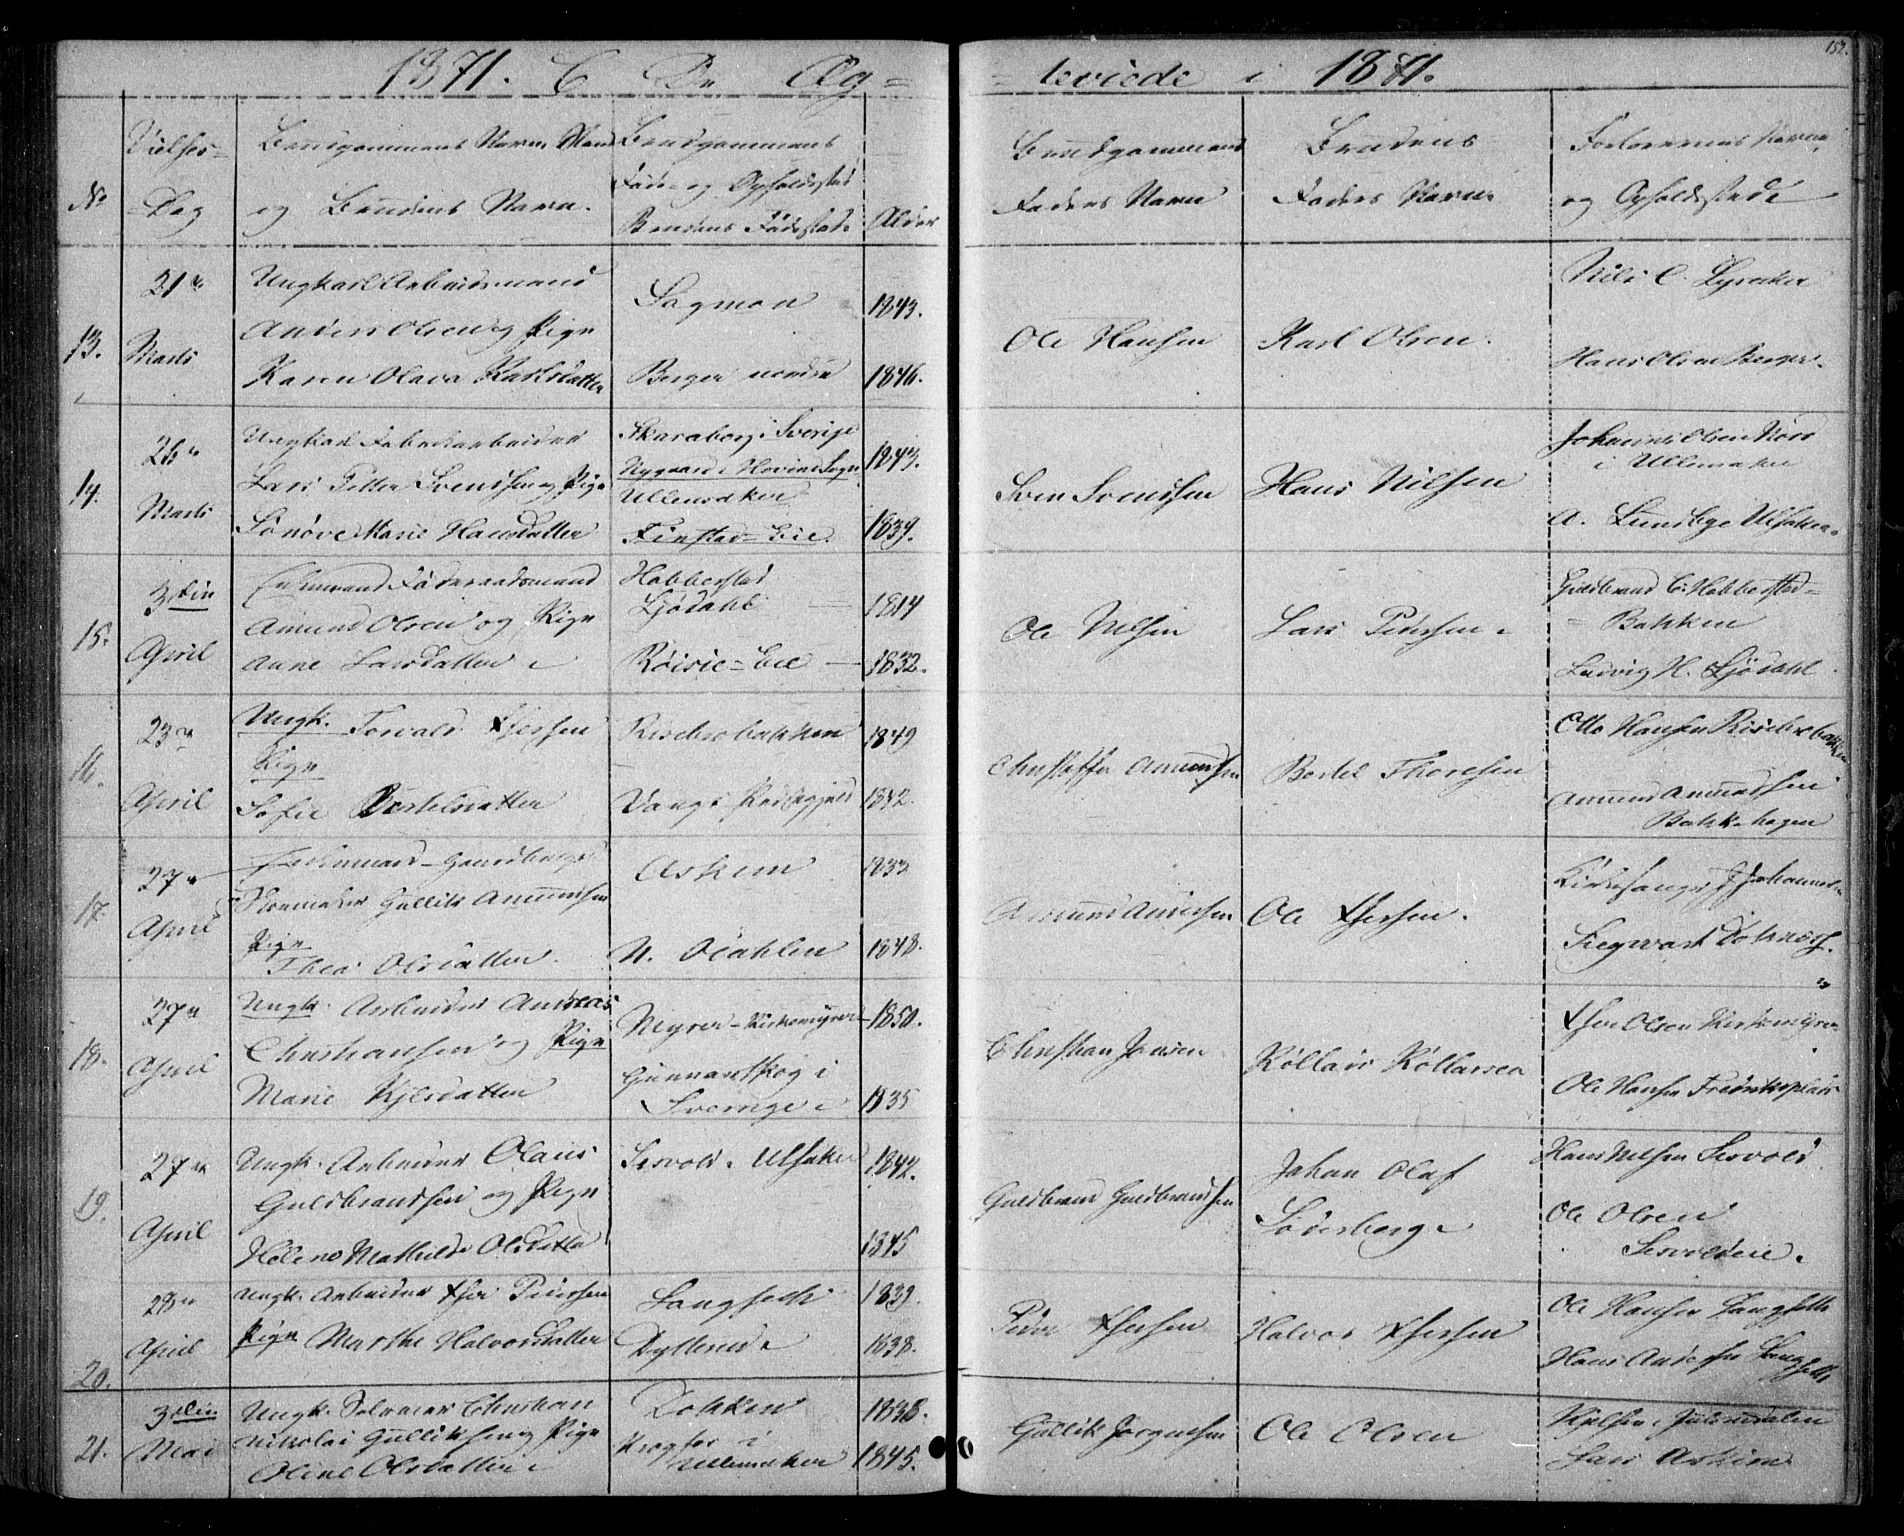 152.
1871. C De Æg=
=teviede i 1871.
No
Vielses-
Dag
Brudgommens Navn, Stand
og Brudens Navn.
Brudgommens
Føde- og Opholdssted
Brudens Fødested.
Alder
Brudgommens
Faders Navn
Brudens
Faders Navn.
Forlovernes Navne
og Opholdsstede
13.
21de
Marts
Ungkarl Arbeidsmand
Anders Olsen og Pige
Karen Olava Karlsdatter
Sogmon
Berger nordre
1843.
1846.
Ole Hansen
Karl Olsen.
Nils C. Lysaker
Hans Olsen Berger.
14.
26de
Marts
Ungkarl Fabrikarbeider
Lars Petter Svendsen og Pige
Sønøve Marie Hansdatter
Skaraborg i Sverige
Nygaard i Hovind Sogn
Ullensaker
Finstad-Eie.
1843.
1839.
Sven Svendsen
Hans Nilsen
Johannes Olsen Nors
i Ullensaker
A. Lundbye Ulsaker.
15.
3die
April
Enkemand Føderaadsmand
Amund Olsen og Pige
Anne Larsdatter
Habberstad
Ljødahl
Røisie-Eie
1814
1832.
Ole Nilsen
Lars Pedersen
Guldbrand C. Habberstad=
=Bakken
Ludvig H. Ljødahl.
16.
23de
April
Ungk. Torvald Chersen
Pige
Sofie Bertelsdatter
Risebrobakken
Vangs Præstegjeld
1849
1842.
Christoffer Amundsen
Bertel Thoresen
Otto Hansen Risebrobakken
Amund Amundsen
Bakkehagen
17.
27de
April
Enkemand Gaardbruger
Skomaker Gullik Amundsen
Pige
Thea Olsdatter.
Askim
N. Ødahlen
1833
1848.
Amund Andersen
Ole Ihersen.
Kirkesanger J Johannesen
Siegwart Dokness.
18.
27de
April
Ungk. Arbeider Andreas
Christiansen og Pige
Marie Kjelsdatter
Myrer-Kirkemyrer
Gunnarskog i
Sverige
1850.
1835
Christian Jensen
Køllars Køllarsen
Iher Olsen Kirkemyrer
Ole Hansen Fredrikspladsen
19.
27de
April
Ungk. Arbeider Olaus
Guldbrandsen og Pige
Helene Mathilde Olsdatter
Sesvold. Ulsaker
1842.
1845
Guldbrand Guldbrandsen
Johan Olaf
Søderberg
Hans Nilsen Sesvold.
Ole Olsen
Sesvoldeie.
20.
28de
April
Ungk. Arbeider Iher Pedersen
Pige Marthe Halvorsdatter
Langseth
Dytterud
1839.
1838.
Peder Ihersen
Halvor Ihersen
Ole Hansen Langseth
Hans Andersen Langseth
21.
3die
Mai
Ungk. Selveier Christian
Nikolai Gulliksen og Pige
Oline Olsdatter
Dokken
Krogfos i
Ullensaker
1838.
1845.
Gullik Jørgensen
Ole Olsen
Lars Askim